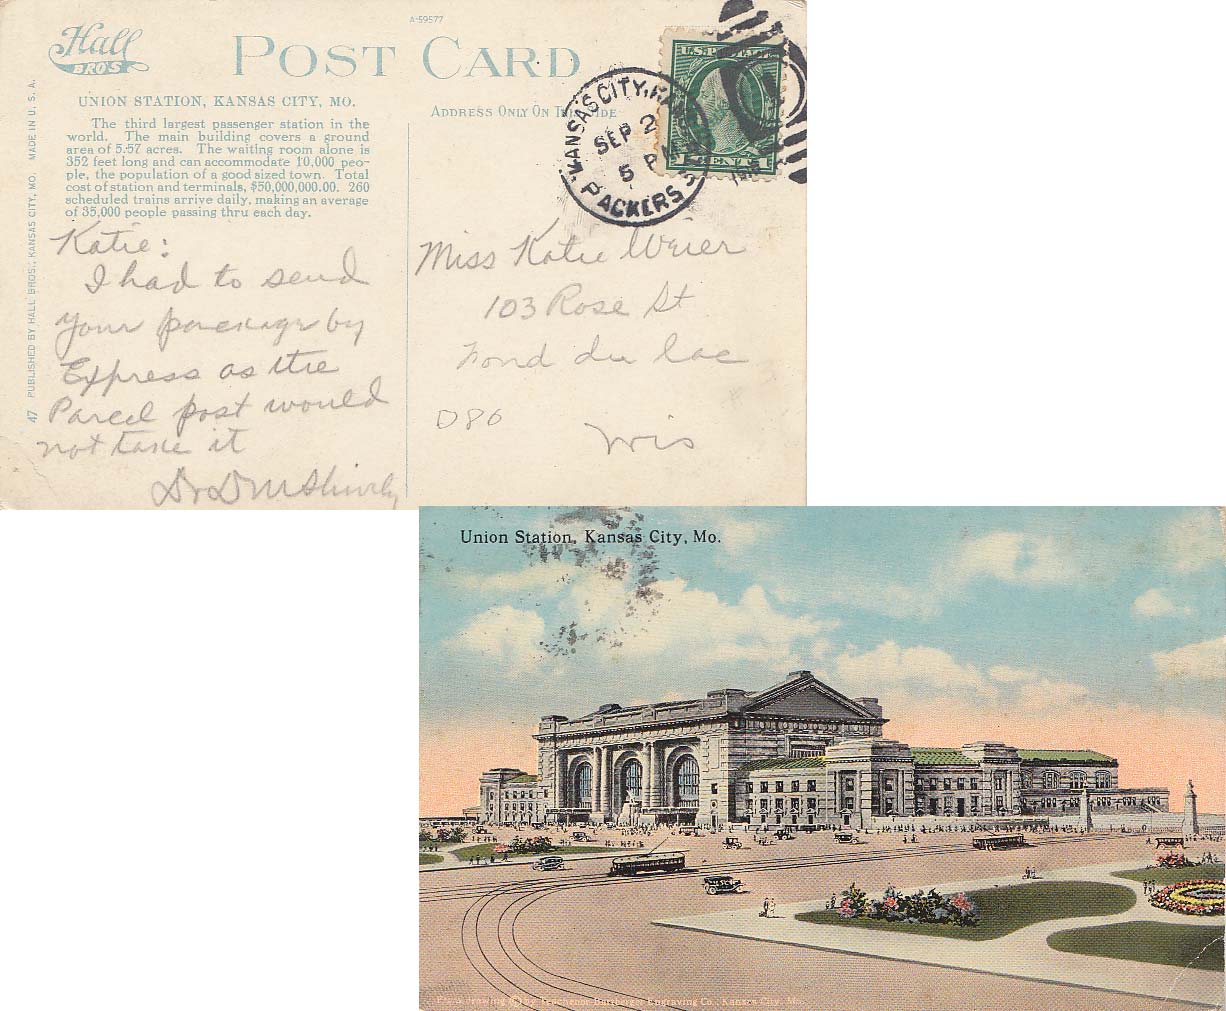 A-59577
Hall
BRO'S
POST CARD
UNION STATION, KANSAS CITY, MO.
The third largest passenger station in the
world. The main building covers a ground
area of 5.57 acres. The waiting room alone is
352 feet long and can accommodate 10,000 peo-
ple, the population of a good sized town. Total
cost of station and terminals, $50,000,000.00. 260
scheduled trains arrive daily, making an average
of 35,000 people passing thru each day.
47 PUBLISHED BY HALL BROS., KANSAS CITY, MO. MADE IN U. S. A.
Katie:
I had to send
your package by
Express as the
Parcel post would
not take it
Dr D M Shively
ADDRESS ONLY ON THIS SIDE
KANSAS CITY, KAN
SEP 2
5 PM
PACKERS
U.S. POSTAGE
CENT
Miss Katie Weier
103 Rose St
Fond du Lac
D86
Wis
Union Station, Kansas City, Mo.
From drawing © by Teachenor-Bartberger Engraving Co., Kansas City, Mo.